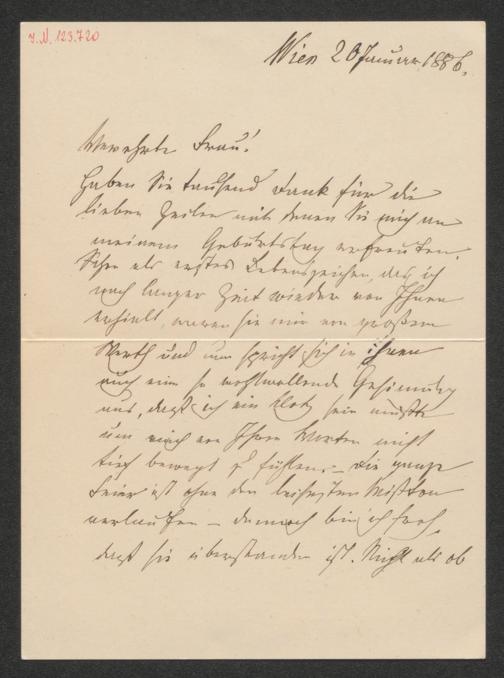 I.N. 123.720
Wien 20 Januar 1886.
Verehrte Frau!
Haben Sie tausend Dank für die
lieben Zeilen mit denen Sie mich an
meinem Geburtstag erfreuten.
Schon als erstes Lebenszeichen, das ich
nach langer Zeit wieder von Ihnen
erhielt, waren sie mir von großem
Werth und nun spricht sich in ihnen
auch eine so wohlwollende Gesinnung
aus, daß ich ein Klotz sein müßte
um mich von Ihren Worten nicht
tief bewegt zu fühlen. – Die ganze
Feier ist ohne den leisesten Mißton
verlaufen – dennoch bin ich froh,
daß sie überstanden ist. Nicht als ob